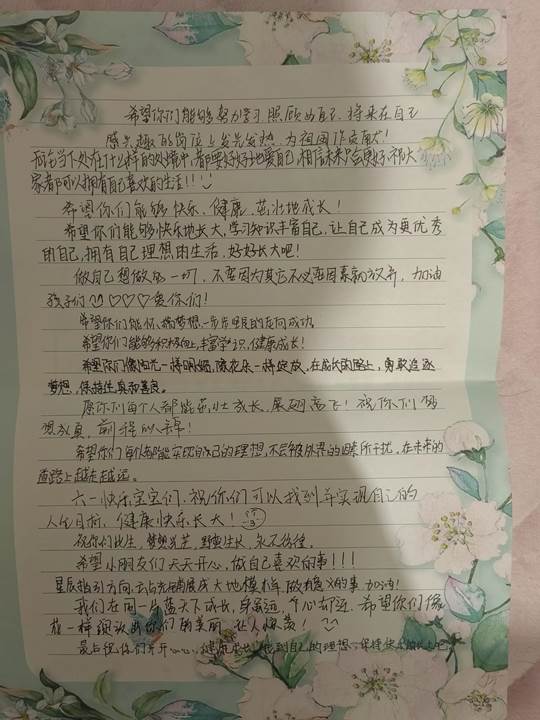 希望你们能够努力学习,照顾好自己,将来在自己
感兴趣的岗位上发光发热,为祖国作贡献!
无论当下处在什么样的处境中,都要好好地爱自己,相信未来会更好,祝大
家都可以拥有自己喜欢的生活!!!
希望你们能够快乐、健康、茁壮地成长!
希望你们能够快乐地长大,学习知识丰富自己,让自己成为更优秀
的自己,拥有自己理想的生活,好好长大吧!
做自己想做的一切,不要因为其它不必要因素就放弃,加油
孩子们 ♡♡♡爱你们!
希望你们能 梦想一步步 的走向成功。
希望你们能够积极向上,丰富学识,健康成长!
希望你们像阳光一样明媚,像花朵一样绽放,在成长的路上,勇敢追逐
梦想,保持住真和善良。
愿你们每个人都能茁壮成长,展翅高飞!祝你们梦
想成真,前程似锦!
希望你们每个人都能实现自己的理想,不会被外界的因素所干扰,在未来的
道路上越走越远。
六一快乐宝宝们,祝你们可以找到并实现自己的
人生目标,健康快乐长大!
祝你们此生,梦想光芒,野蛮生长,永不彷徨。
希望小朋友们天天开心,做自己喜欢的事!!!
星辰指引方向, 大地 做有意义的事 加油!
我们在同一片蓝天下成长,身虽远,但心却近,希望你们像
花一样绽放出你们的美丽,让人惊羡!
最后祝你们开开心心,健康 找到自己的理想,保持快乐